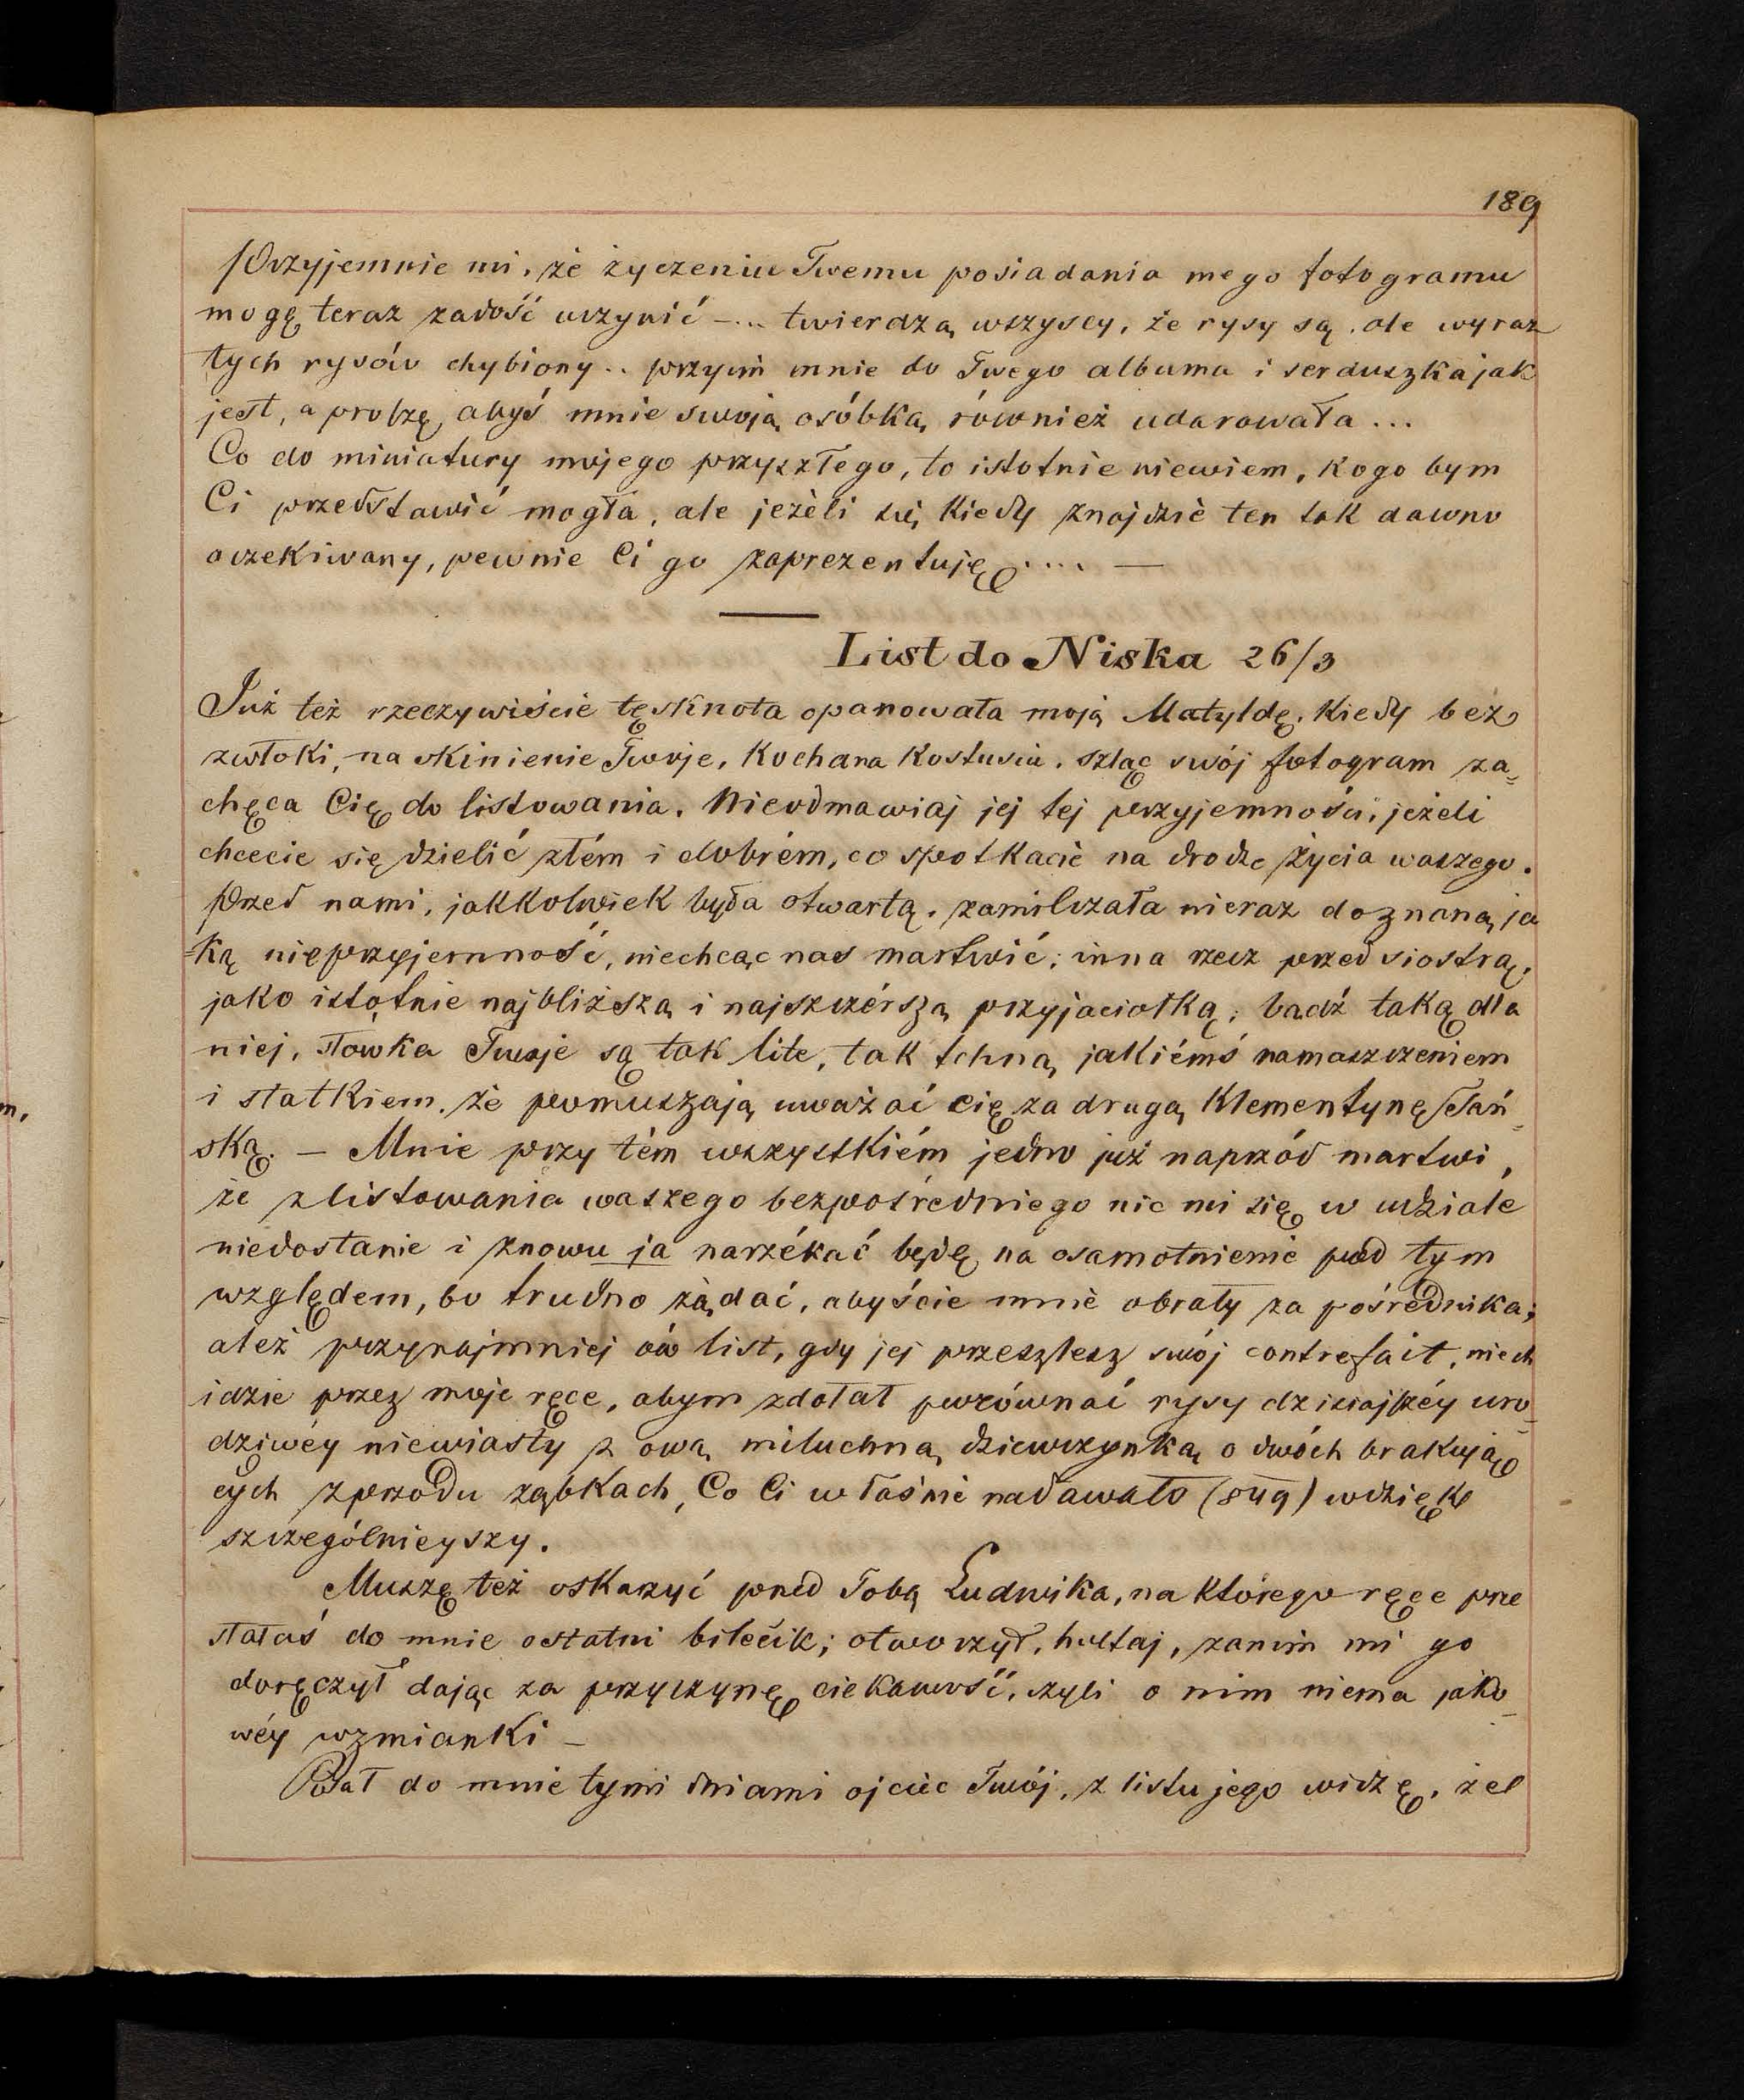 189
Przyjemnie mi, że życzeniu Twemu posiadania mego fotogramu
mogę teraz zadość uczynić —... twierdzą wszyscy, że rysy są, ale wyraz
tych rysów chybiony.. przyim mnie do Twego albumu i serduszka jak
jest, a proszę, abyś mnie swoją osóbką również udarowała...
Co do miniatury mojego przyszłego, to istotnie niewiem, kogo bym
Ci przedstawić mogła, ale jeżeli się kiedy znajdzie ten tak dawno
oczekiwany, pewnie Ci go zaprezentuję.... —
List do Niska 26/3
Już też rzeczywiście tęsknota opanowała moją Matyldę, kiedy bez
zwłoki, na skinienie Twoje, Kochana Kostusiu, szląc swój fotogram za=
chęca Cię do listowania. Nieodmawiaj jej tej przyjemności, jeżeli
chcecie się dzielić złém i dobrém, co spotkacie na drodze życia waszego.
Przed nami, jakkolwiek była otwartą, zamilczała nieraz doznaną ja
=ką nieprzyjemność, niechcąc nas martwić; inna rzecz przed siostrą,
jako istotnie najbliższą i najszczérszą przyjaciołką; bądź taką dla
niej, słówka Twoje są tak lite, tak tchną jakiémś namaszczeniem
i statkiem, że pomuszają uważać cię za drugą Klementynę Tań=
ską. — Mnie przy tém wszystkiém jedno już naprzód martwi,
że z listowania waszego bezpośredniego nic mi się w udziale
niedostanie i znowu ja narzékać będę na osamotnienie pod tym
względem, bo trudno żądać, abyście mnie obrały za pośrednika;
ależ przynajmniej ów list, gdy jej przeszlesz swój contrefait, niech
idzie przez moje ręce, abym zdołał porównać rysy dzisiajszéy uro=
dziwéy niewiasty z ową miluchną dziewczynką o dwóch brakują
cych z przodu ząbkach, Co Ci właśnie nadawało (849) wdzięk
szczególnieyszy.
Muszę też oskarżyć przed Tobą Ludwika, na którego ręce prze
słałaś do mnie ostatni bilecik; otworzył, hultaj, zanim mi go
doręczył dając za przyczynę ciekawość, czyli o nim niema jako=
wéy wzmianki —
Pisał do mnie tymi dniami ojciec Twój, z listu jego widzę, że